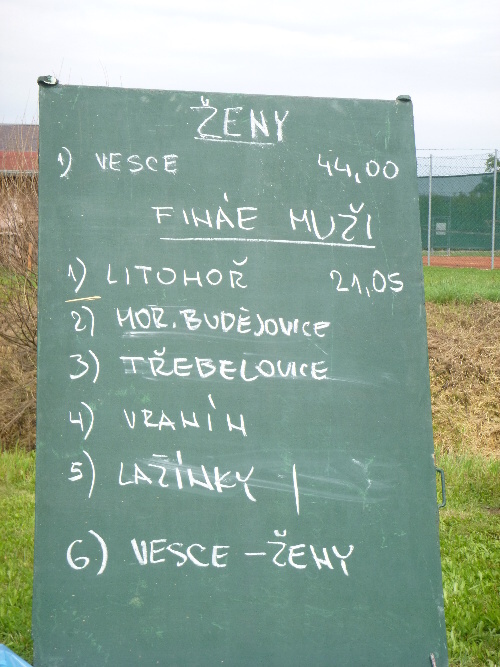 ŽENY
1) VESCE 44,00
FINÁE MUŽI
1) LITOHOŘ 21,05
2) MOR. BUDĚJOVICE
3) TŘEBELOVICE
4) VRANÍN
5) LAŽÍNKY |
6) VESCE - ŽENY